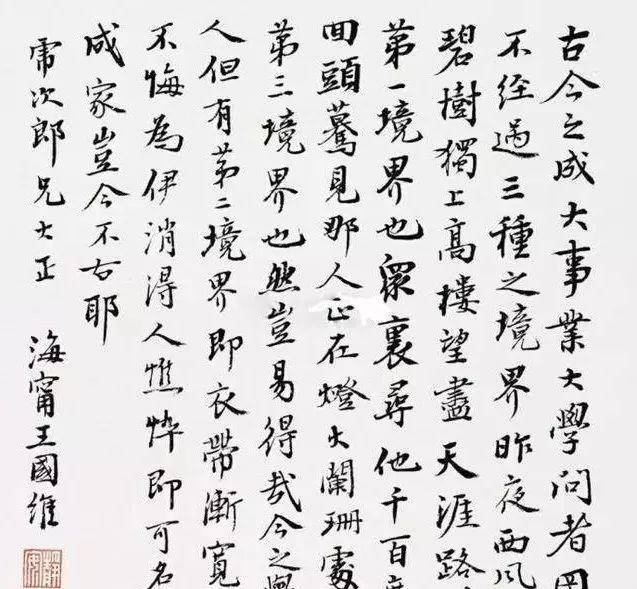 古今之成大事業大學問者罔
不經過三種之境界昨夜西風
碧樹獨上高樓望盡天涯路
第一境界也眾裏尋他千百度
回頭驀見那人正在燈火闌珊處
第三境界也然豈易得哉今之學
人但有第二境界即衣帶漸寬
不悔為伊消得人憔悴即可名
成家豈今不古耶
帚次郎兄大正
海甯王國維
靜安